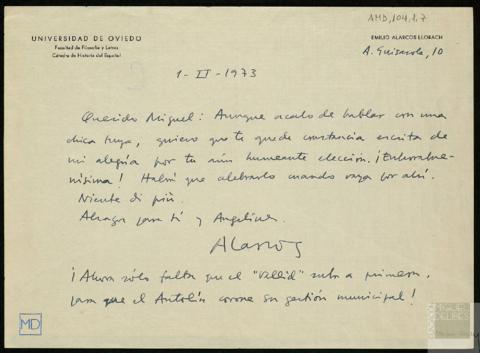 AMD,104,1,7
UNIVERSIDAD DE OVIEDO
Facultad de Filosofía y Letras
Cátedra de Historia del Español
EMILIO ALARCOS LLORACH
A. Guisasola, 10
1-II-1973
Querido Miguel: Aunque acabo de hablar con una
chica tuya, quiero que te quede constancia escrita de
mi alegría por tu aún humeante elección. ¡Enhorabue-
nísima! Habrá que celebrarlo cuando vaya por ahí.
Niente di più.
Abrazos para ti y Angelines.
Alarcos
¡Ahora sólo falta que el "Vallid" suba a primera,
para que el Antolín corone su gestión municipal!
MD
MIGUEL
DELIBES